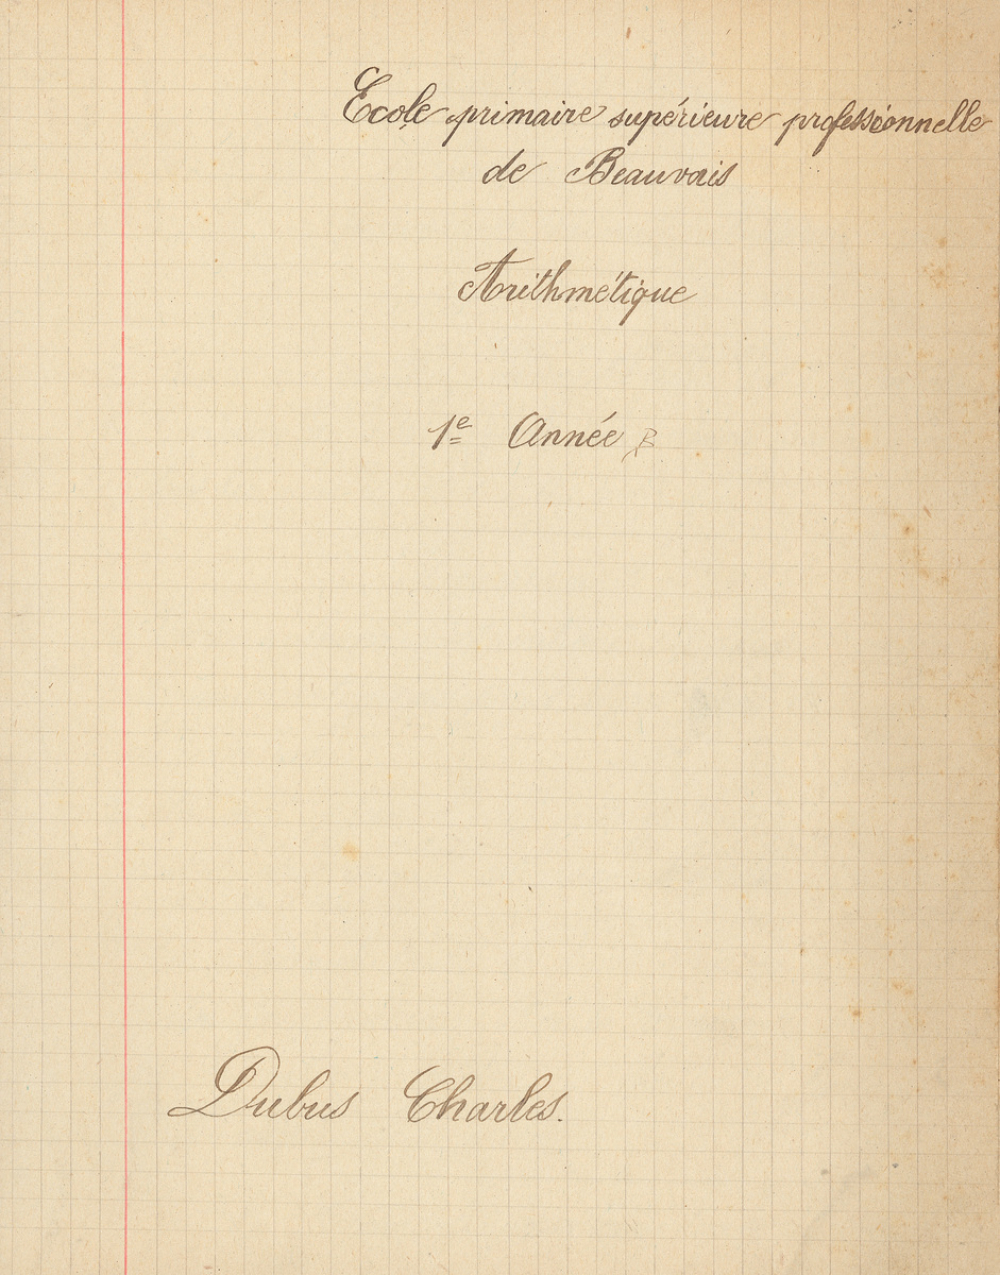 Ecole primaire supérieure professionnelle
de Beauvais
Arithmétique
1e Année B
Dubus Charles.